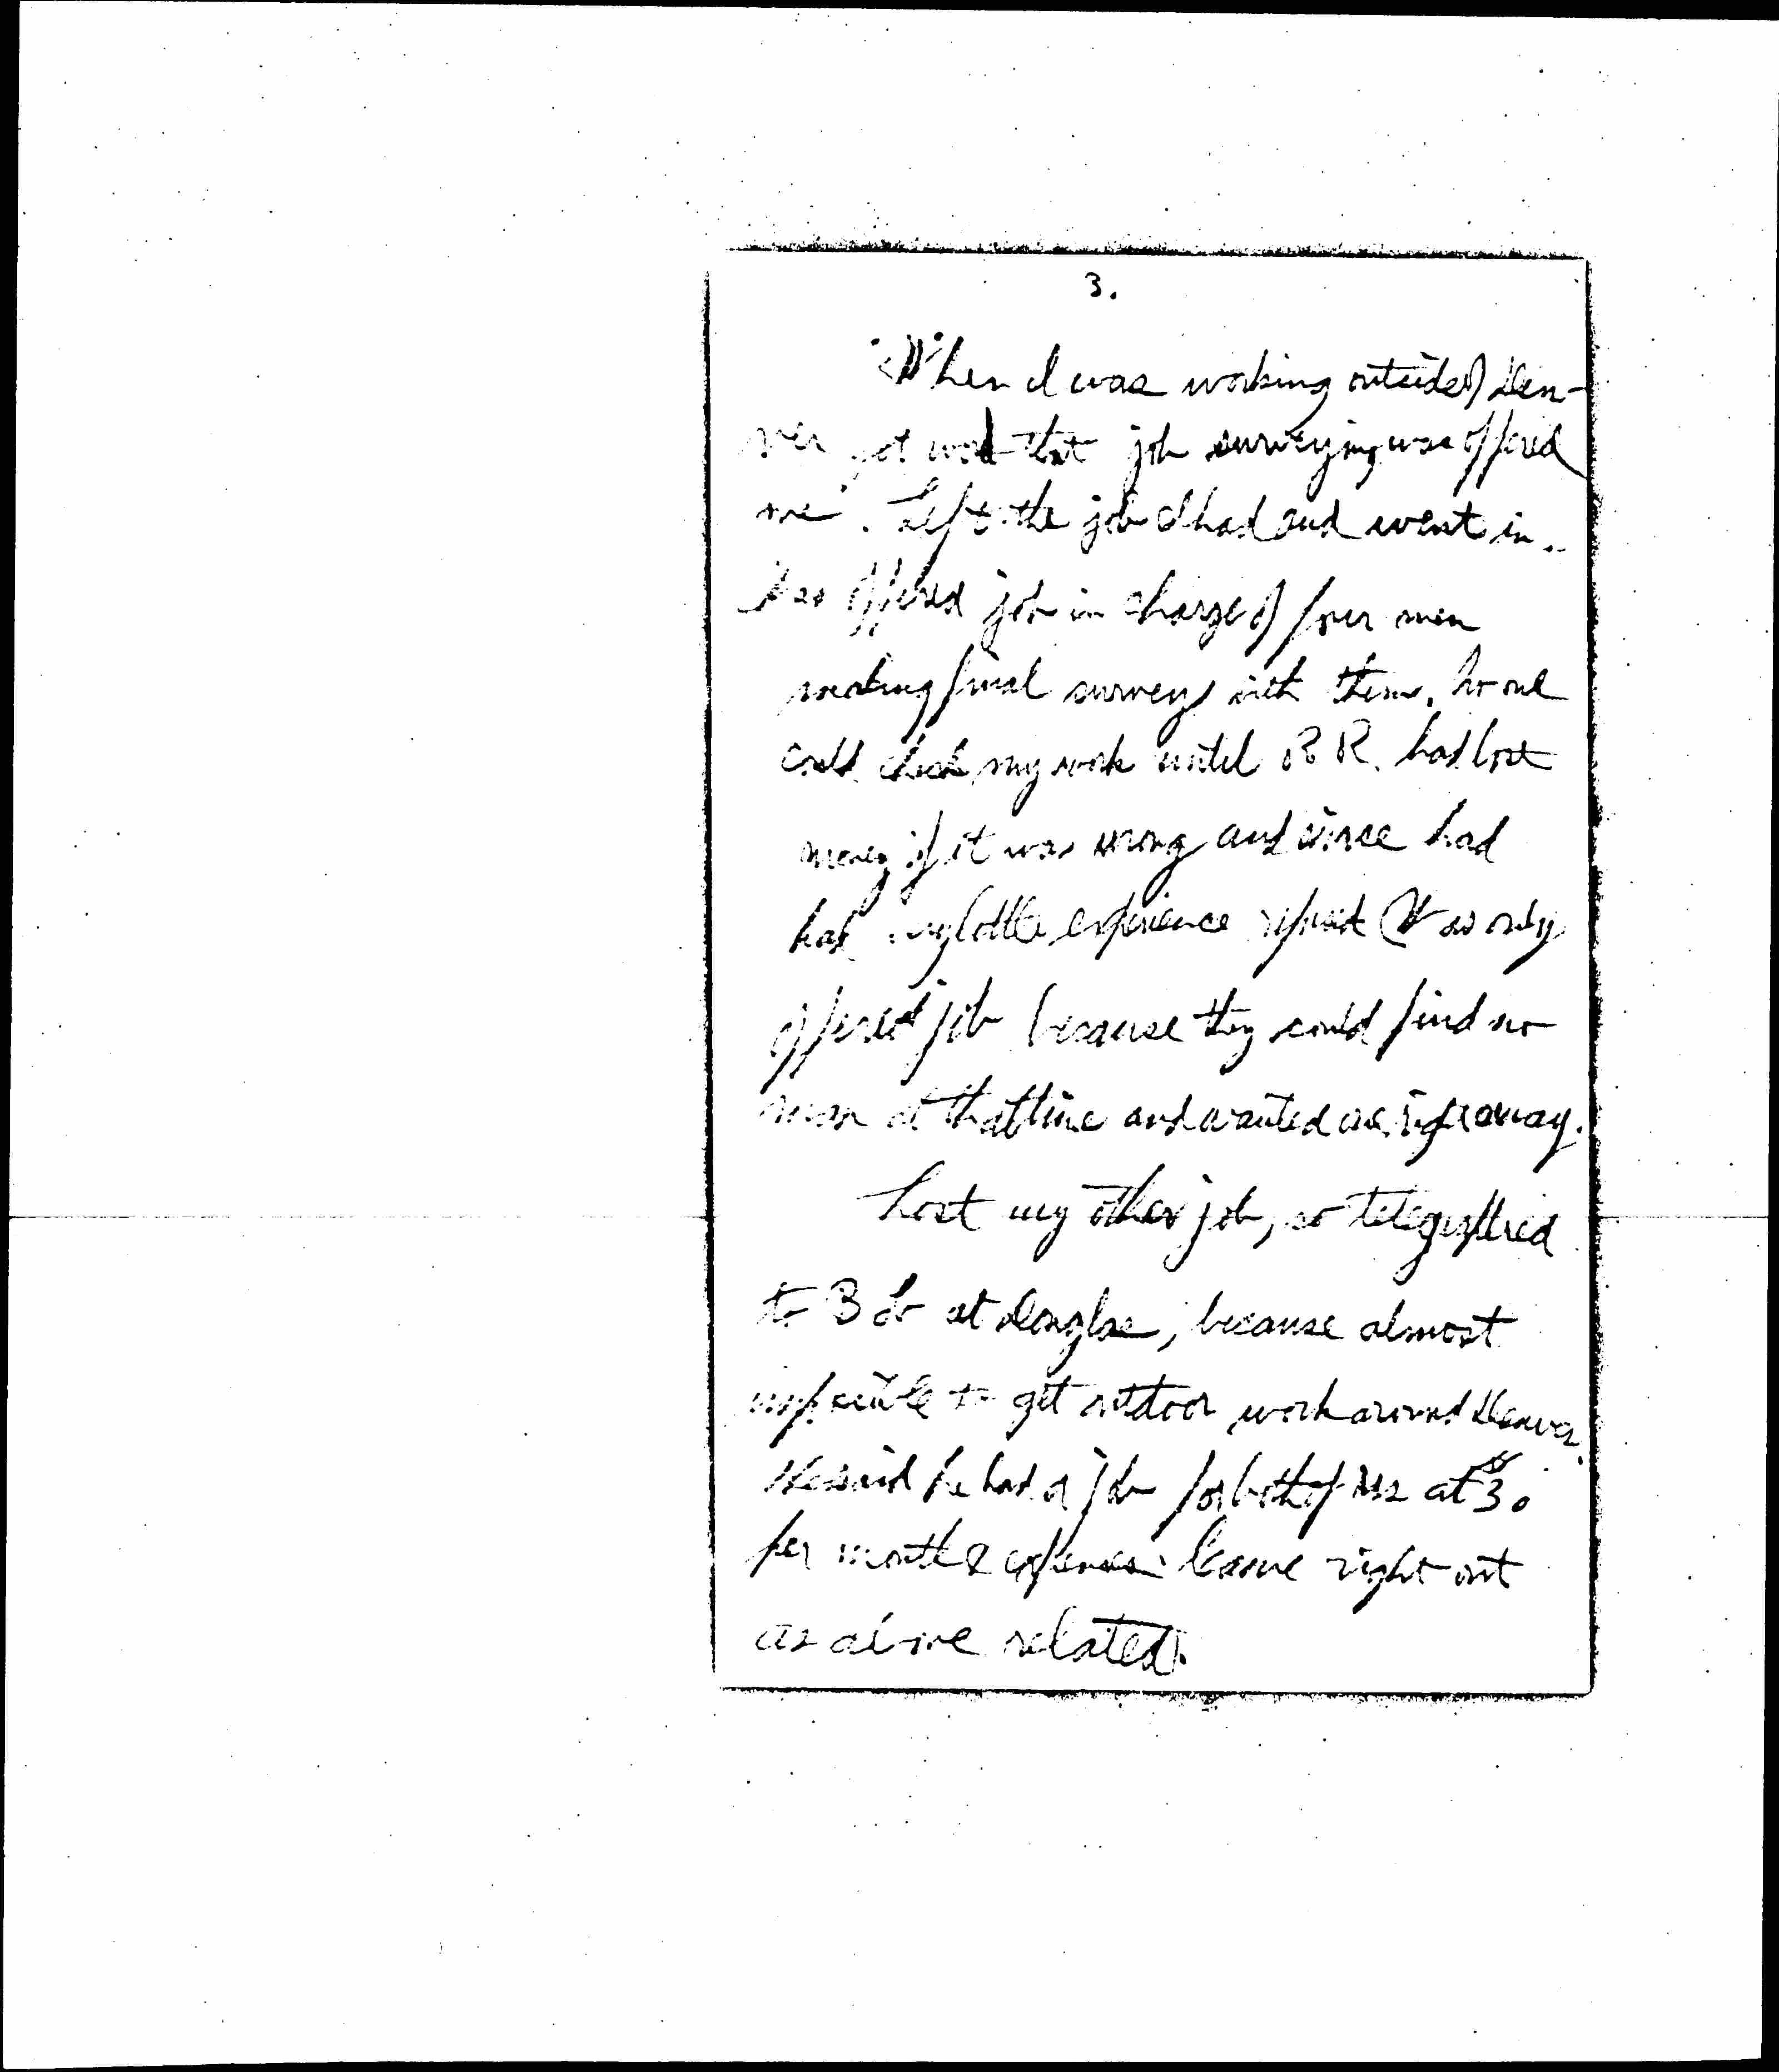 3.
When I was working outside of Den-
ver got word that job surveying was offered
me. Left the job I had and went in.
Was offered job in charge of four men
making final surveys with them. No one
could check my work until R R. had lost
money if it was wrong and since had
had very little experience refused (Was only
offered job because they could find no
man at that time and wanted one right away.
Lost my other job, so telegraphed
to Bob at Douglas, because almost
impossible to get outdoor work around Denver.
He said he had a job for both of us at 30
per month & expenses. Came right out
as above related).